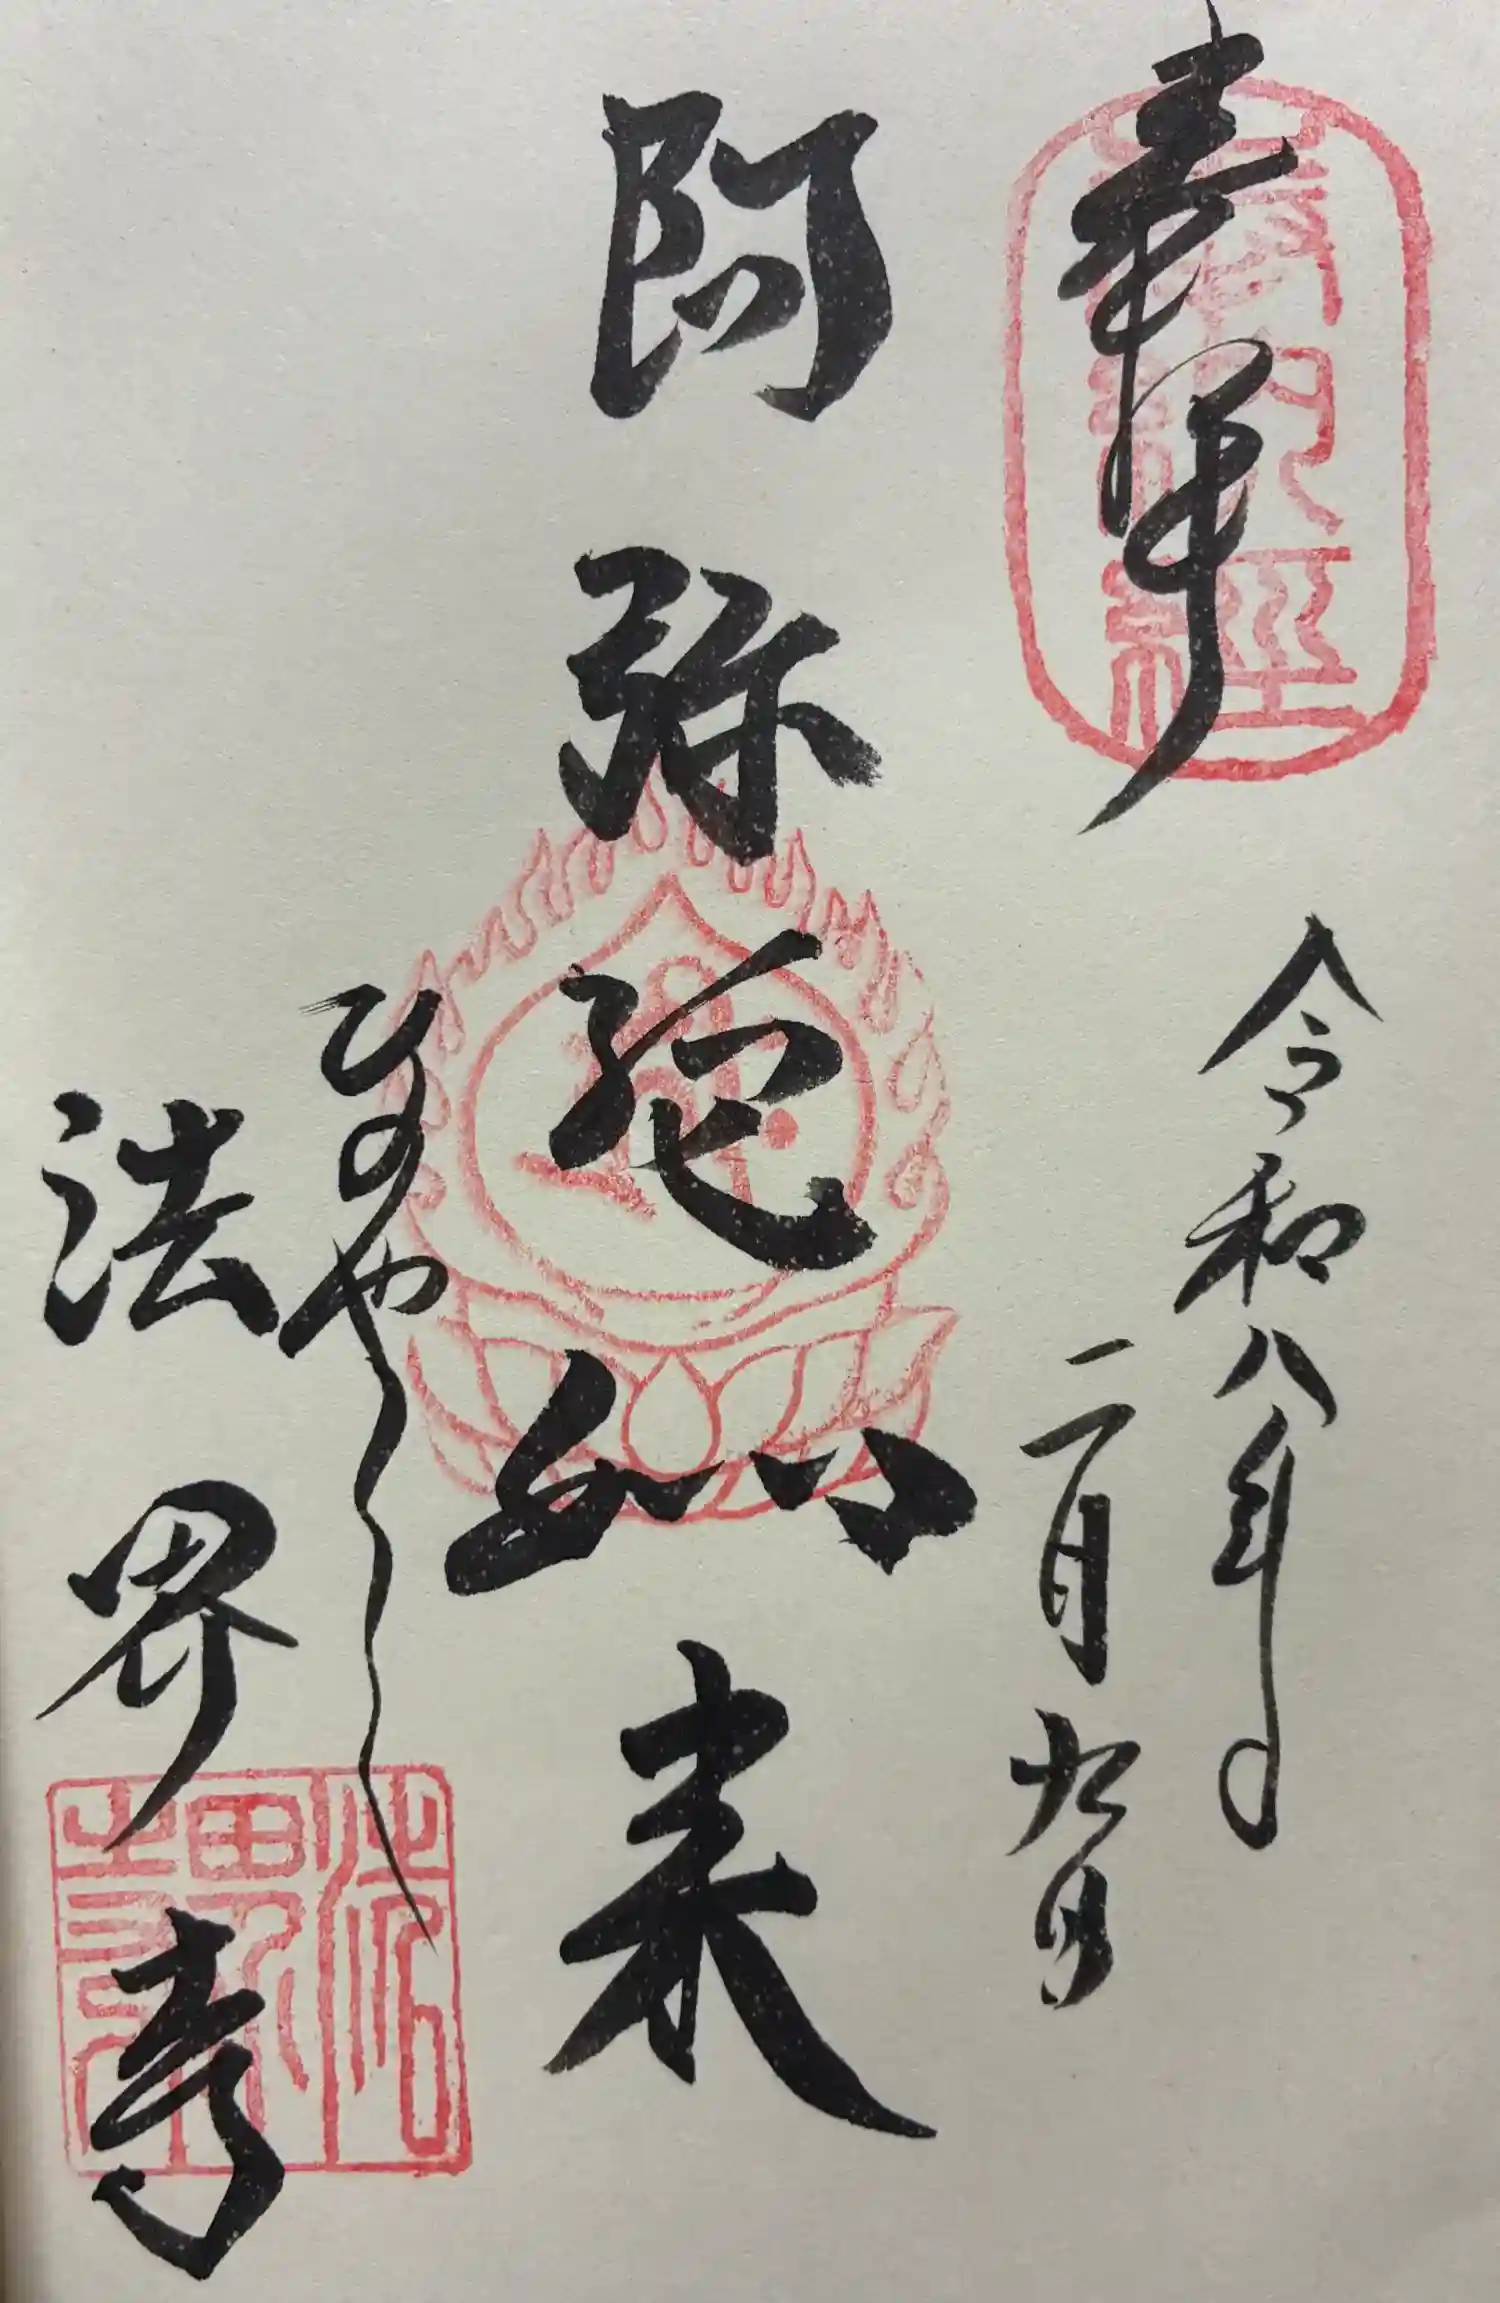 奉拝
令和八年
二月九日
阿弥陀如来
ひのやくし
法界寺